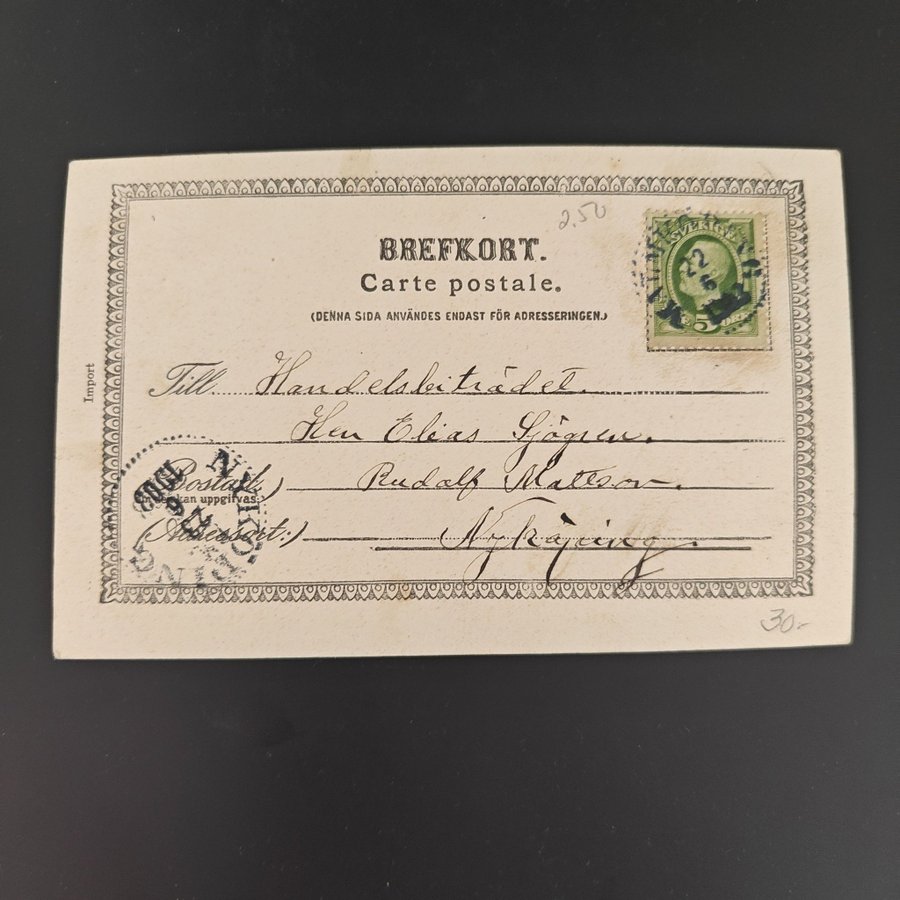 2,50
BREFKORT.
Carte postale.
(DENNA SIDA ANVÄNDES ENDAST FÖR ADRESSERINGEN.)
SVERIGE
22
6
5
Import
Till Handelsbiträdet.
Herr Elias Sjögren.
(Bostad:) Rudolf Mattson.
kan uppgifvas
(Adressort:) Nyköping.
NYKÖPING
30-